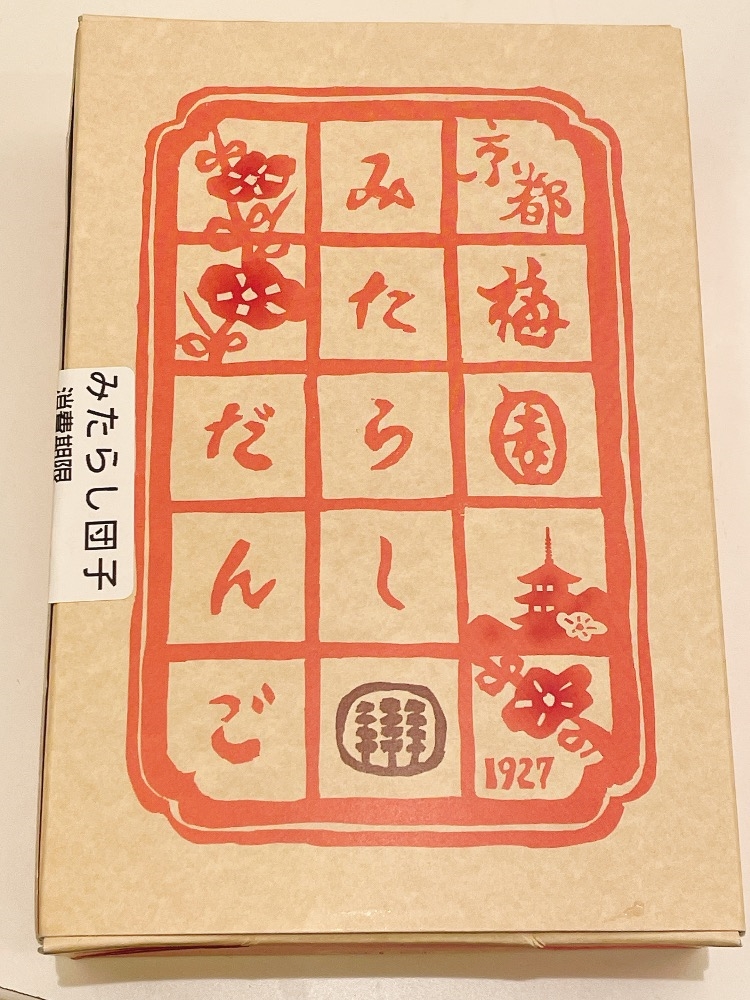 京都
梅園
みたらし
だんご
1927
みたらし団子
消費期限